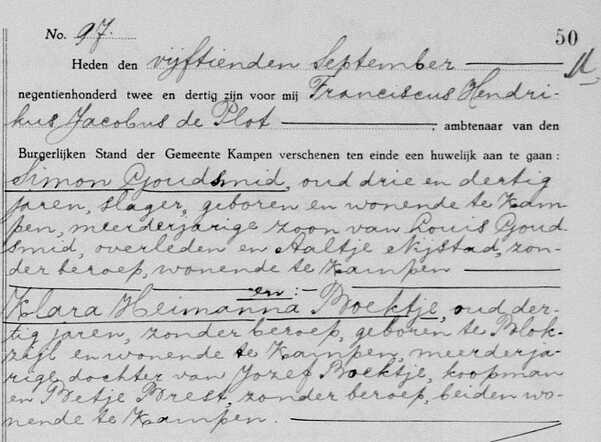 No. 97. 50
Heden den vijftienden September
negentienhonderd twee en dertig zijn voor mij Franciscus Hendri-
kus Jacobus de Plot, ambtenaar van den
Burgerlijken Stand der Gemeente Kampen verschenen ten einde een huwelijk aan te gaan:
Simon Goudsmid, oud drie en dertig
jaren, slager, geboren en wonende te Kam-
pen, meerderjarige zoon van Louis Goud-
smid, overleden en Aaltje Nijstad, zon-
der beroep, wonende te Kampen
en:
Klara Heimanna Boektje, oud der-
tig jaren, zonder beroep, geboren te Blok-
zijl en wonende te Kampen, meerderja-
rige dochter van Jozef Boektje, koopman
en Betje Brest, zonder beroep, beiden wo-
nende te Kampen.